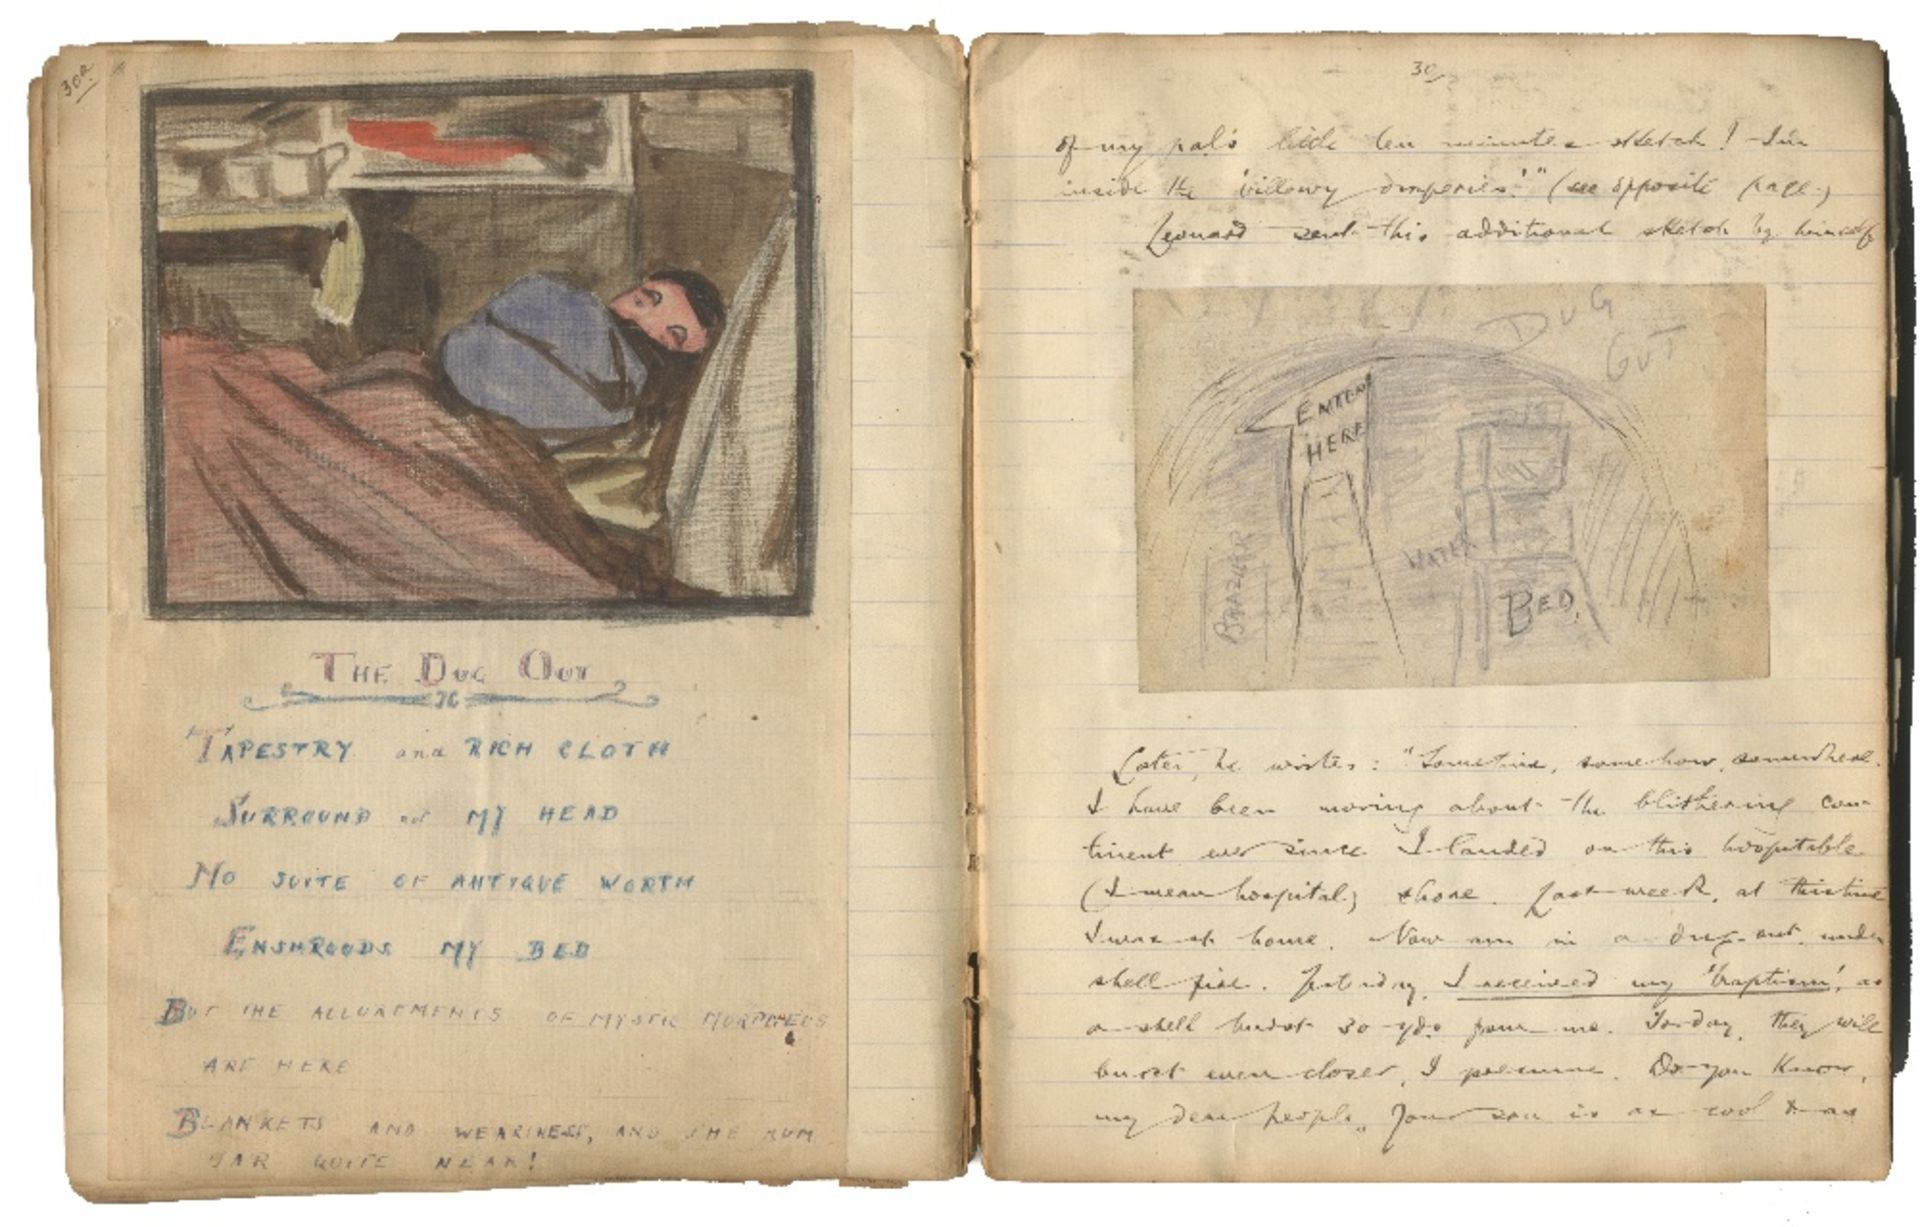 30a
THE DUG OUT
TAPESTRY and RICH CLOTH
SURROUND not MY HEAD
NO SUITE OF ANTIQUE WORTH
ENSHROUDS MY BED
BUT THE ALLUREMENTS OF MYSTIC MORPHEUS
ARE HERE
BLANKETS AND WEARINESS, AND THE RUM
JAR QUITE NEAR!
30
of my pal's little ten minutes sketch! I'm
inside the 'billowy draperies'!" (see opposite page.)
Leonard sent this additional sketch by himself
DUG
OUT
ENTER
HERE
BRAZIER
WATER
BED.
Later, he writes: "Sometime, somehow, somewhere.
I have been moving about the blithering con-
tinent ever since I landed on this hospitable
(I mean hospital) shore. Last week, at this time
I was at home. Now am in a dug-out, under
shell fire. Yesterday, I received my 'baptism', as
a shell burst 30 yds from me. To-day, they will
burst even closer, I presume. Do you know,
my dear people, your son is as cool as